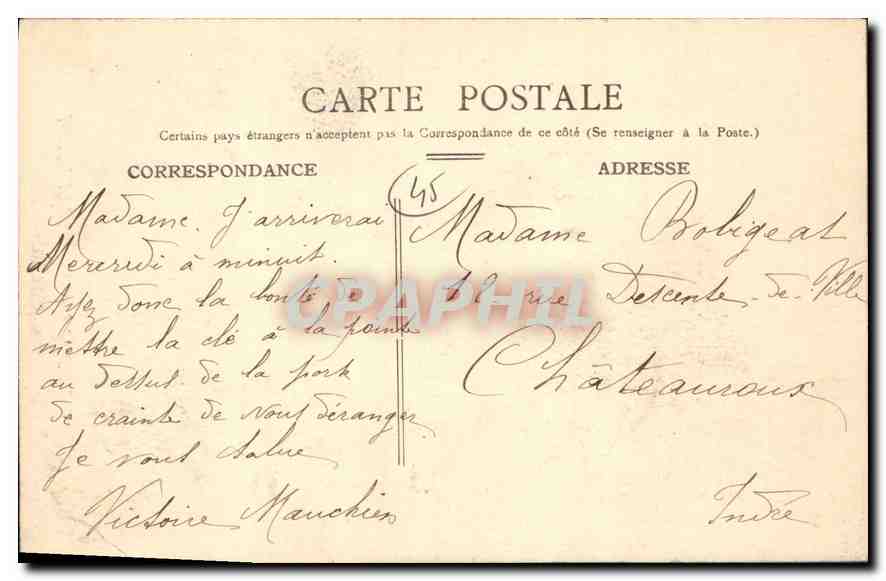 CARTE POSTALE
Certains pays étrangers n'acceptent pas la Correspondance de ce côté (Se renseigner à la Poste.)
CORRESPONDANCE
Madame. J'arriverai
Mercredi à minuit.
Ayez donc la bonté de
mettre la clé à la pointe
au dessus de la porte
de crainte de vous déranger
Je vous salue
Victoire Mauchien
45
ADRESSE
Madame Bobigeat
rue Descente-de-Ville
Châteauroux
Indre
CPAPHIL